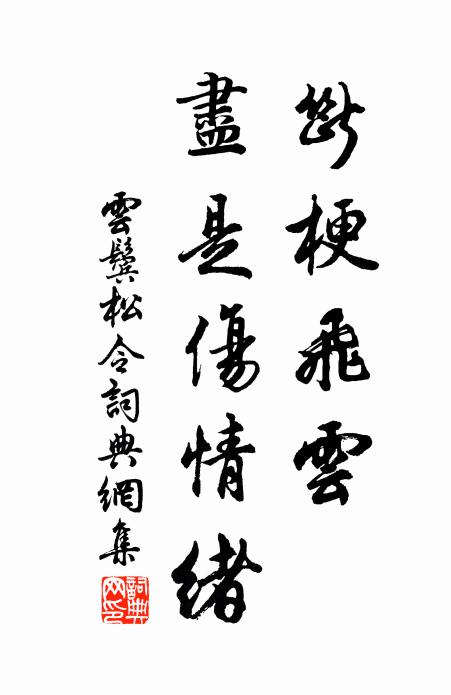 斷梗飛雲
盡是傷情緒
雲鬢松令詞典網集
詞典網印